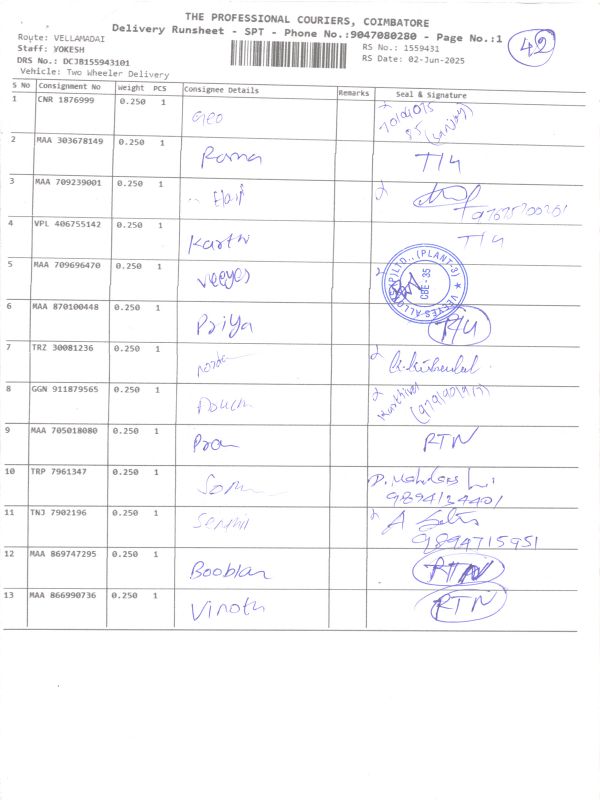 THE PROFESSIONAL COURIERS, COIMBATORE
Delivery Runsheet - SPT - Phone No.:9047080280 - Page No.:1
42
Route: VELLAMADAI
RS No.: 1559431
Staff: YOKESH
RS Date: 02-Jun-2025
DRS No.: DCJB155943101
Vehicle: Two Wheeler Delivery
S No Consignment No Weight PCS Consignee Details Remarks Seal & Signature
1 CNR 1876999 0.250 1 Geo
2 MAA 303678149 0.250 1 Rama T/4
3 MAA 709239001 0.250 1
4 VPL 406755142 0.250 1 Karthi T/4
5 MAA 709696470 0.250 1 Veeyes
VEEYES ALLOY (P) LTD., (PLANT-3) CBE-35
6 MAA 870100448 0.250 1 Priya
7 TRZ 30081236 0.250 1
8 GGN 911879565 0.250 1
9 MAA 705018080 0.250 1 RTN
10 TRP 7961347 0.250 1
9894134401
11 TNJ 7902196 0.250 1 Senthil
9894715951
12 MAA 869747295 0.250 1 Booblan RTN
13 MAA 866990736 0.250 1 Vinoth RTN